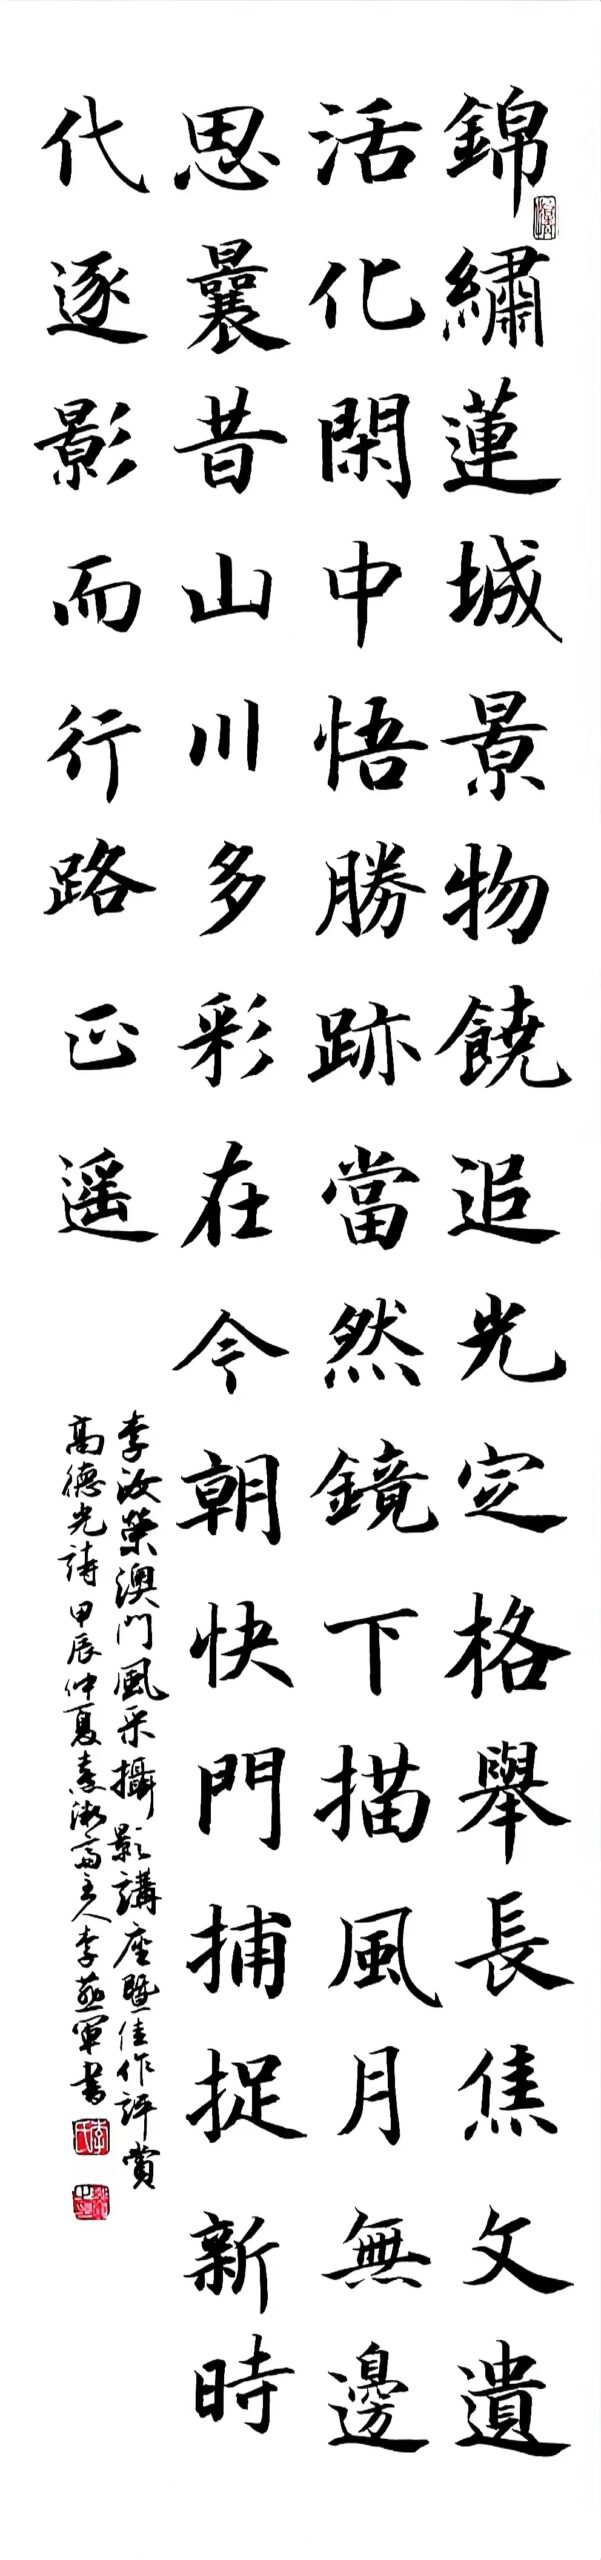 錦繡蓮城景物饒追光定格舉長焦文遺
活化閑中悟勝跡當然鏡下描風月無邊
思曩昔山川多彩在今朝快門捕捉新時
代逐影而行路正遥
李汝榮澳門風采攝影講座暨佳作評賞
高德光詩甲辰仲夏 齋主人李 軍書
李氏